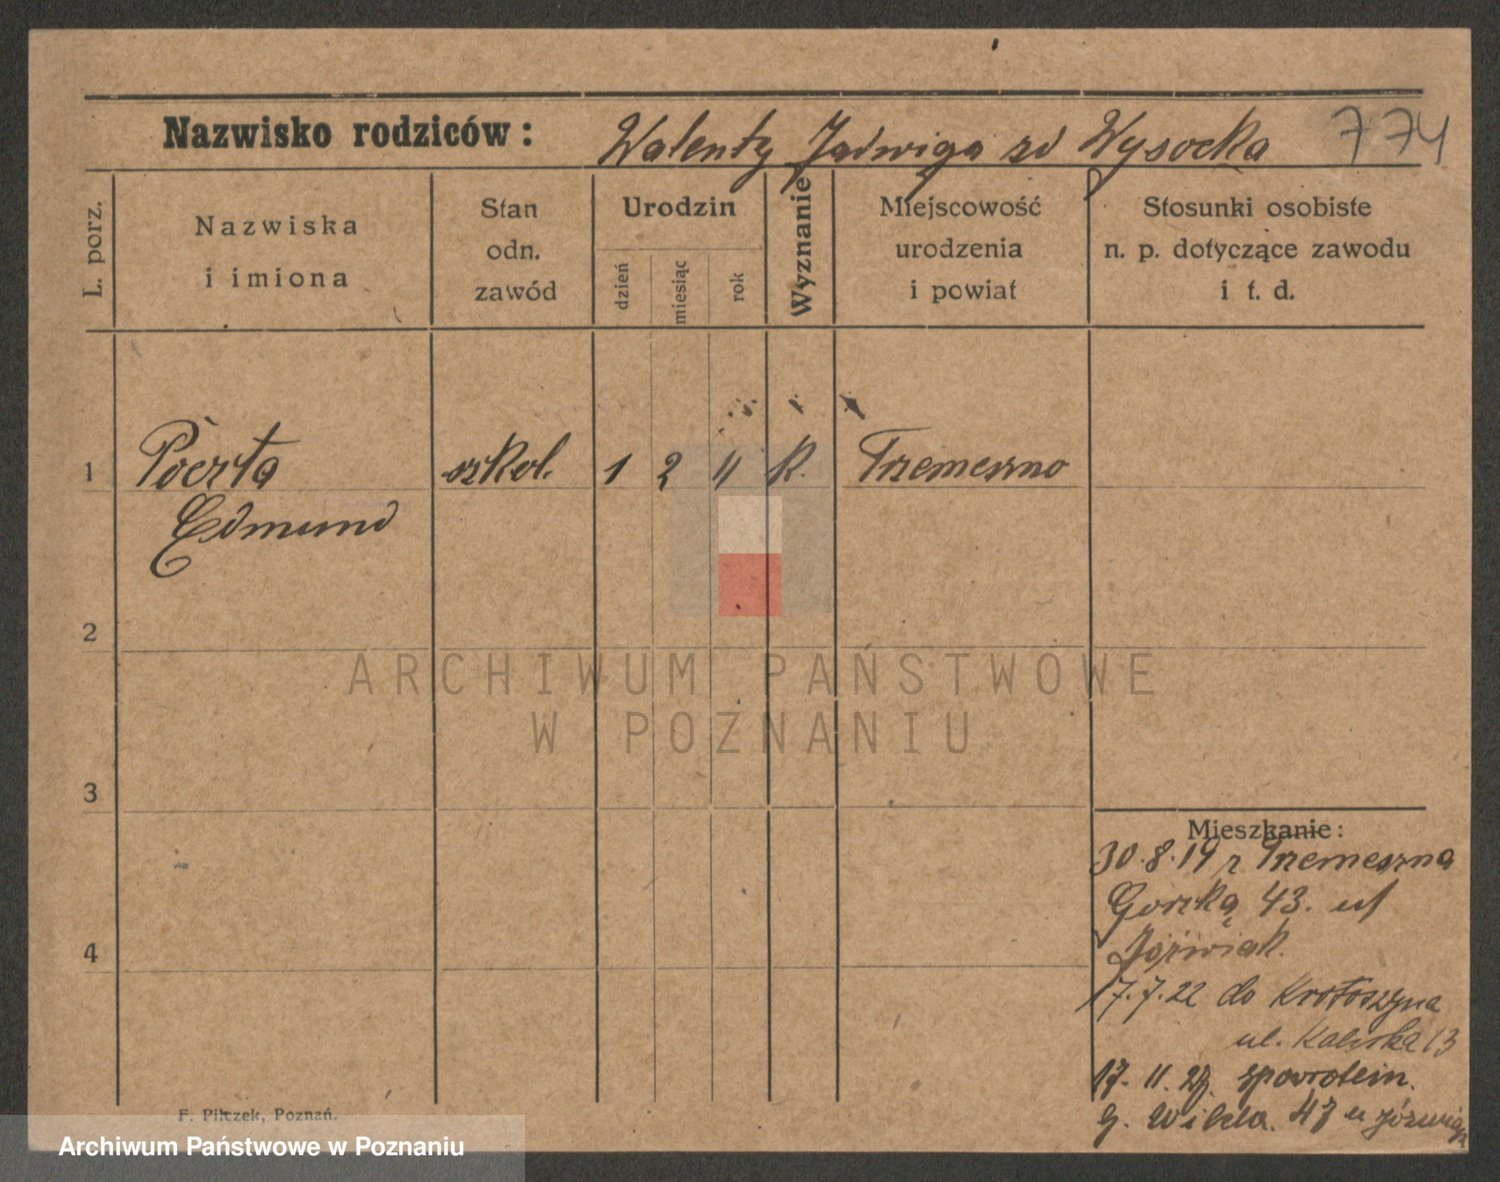 Nazwisko rodziców: Walenty Jadwiga zd Wysocka 774
L. porz.
Nazwiska
i imiona
Stan
odn.
zawód
Urodzin
dzień
miesiąc
rok
Wyznanie
Miejscowość
urodzenia
i powiat
Stosunki osobiste
n. p. dotyczące zawodu
i t. d.
1 Poczta szkol. 1 2 11 K. Trzemeszno
Edmund
2
3
4
Mieszkanie:
30.8.19 z Trzemeszna
Gorzką 43. u
Jóźwiak.
17.7.22 do Krotoszyna
ul. Kaliska 13
17. 11. spowrotem.
G. Wilda. 43 u
F. Pilczek, Poznań.
ARCHIWUM PAŃSTWOWE
W POZNANIU
Archiwum Państwowe w Poznaniu